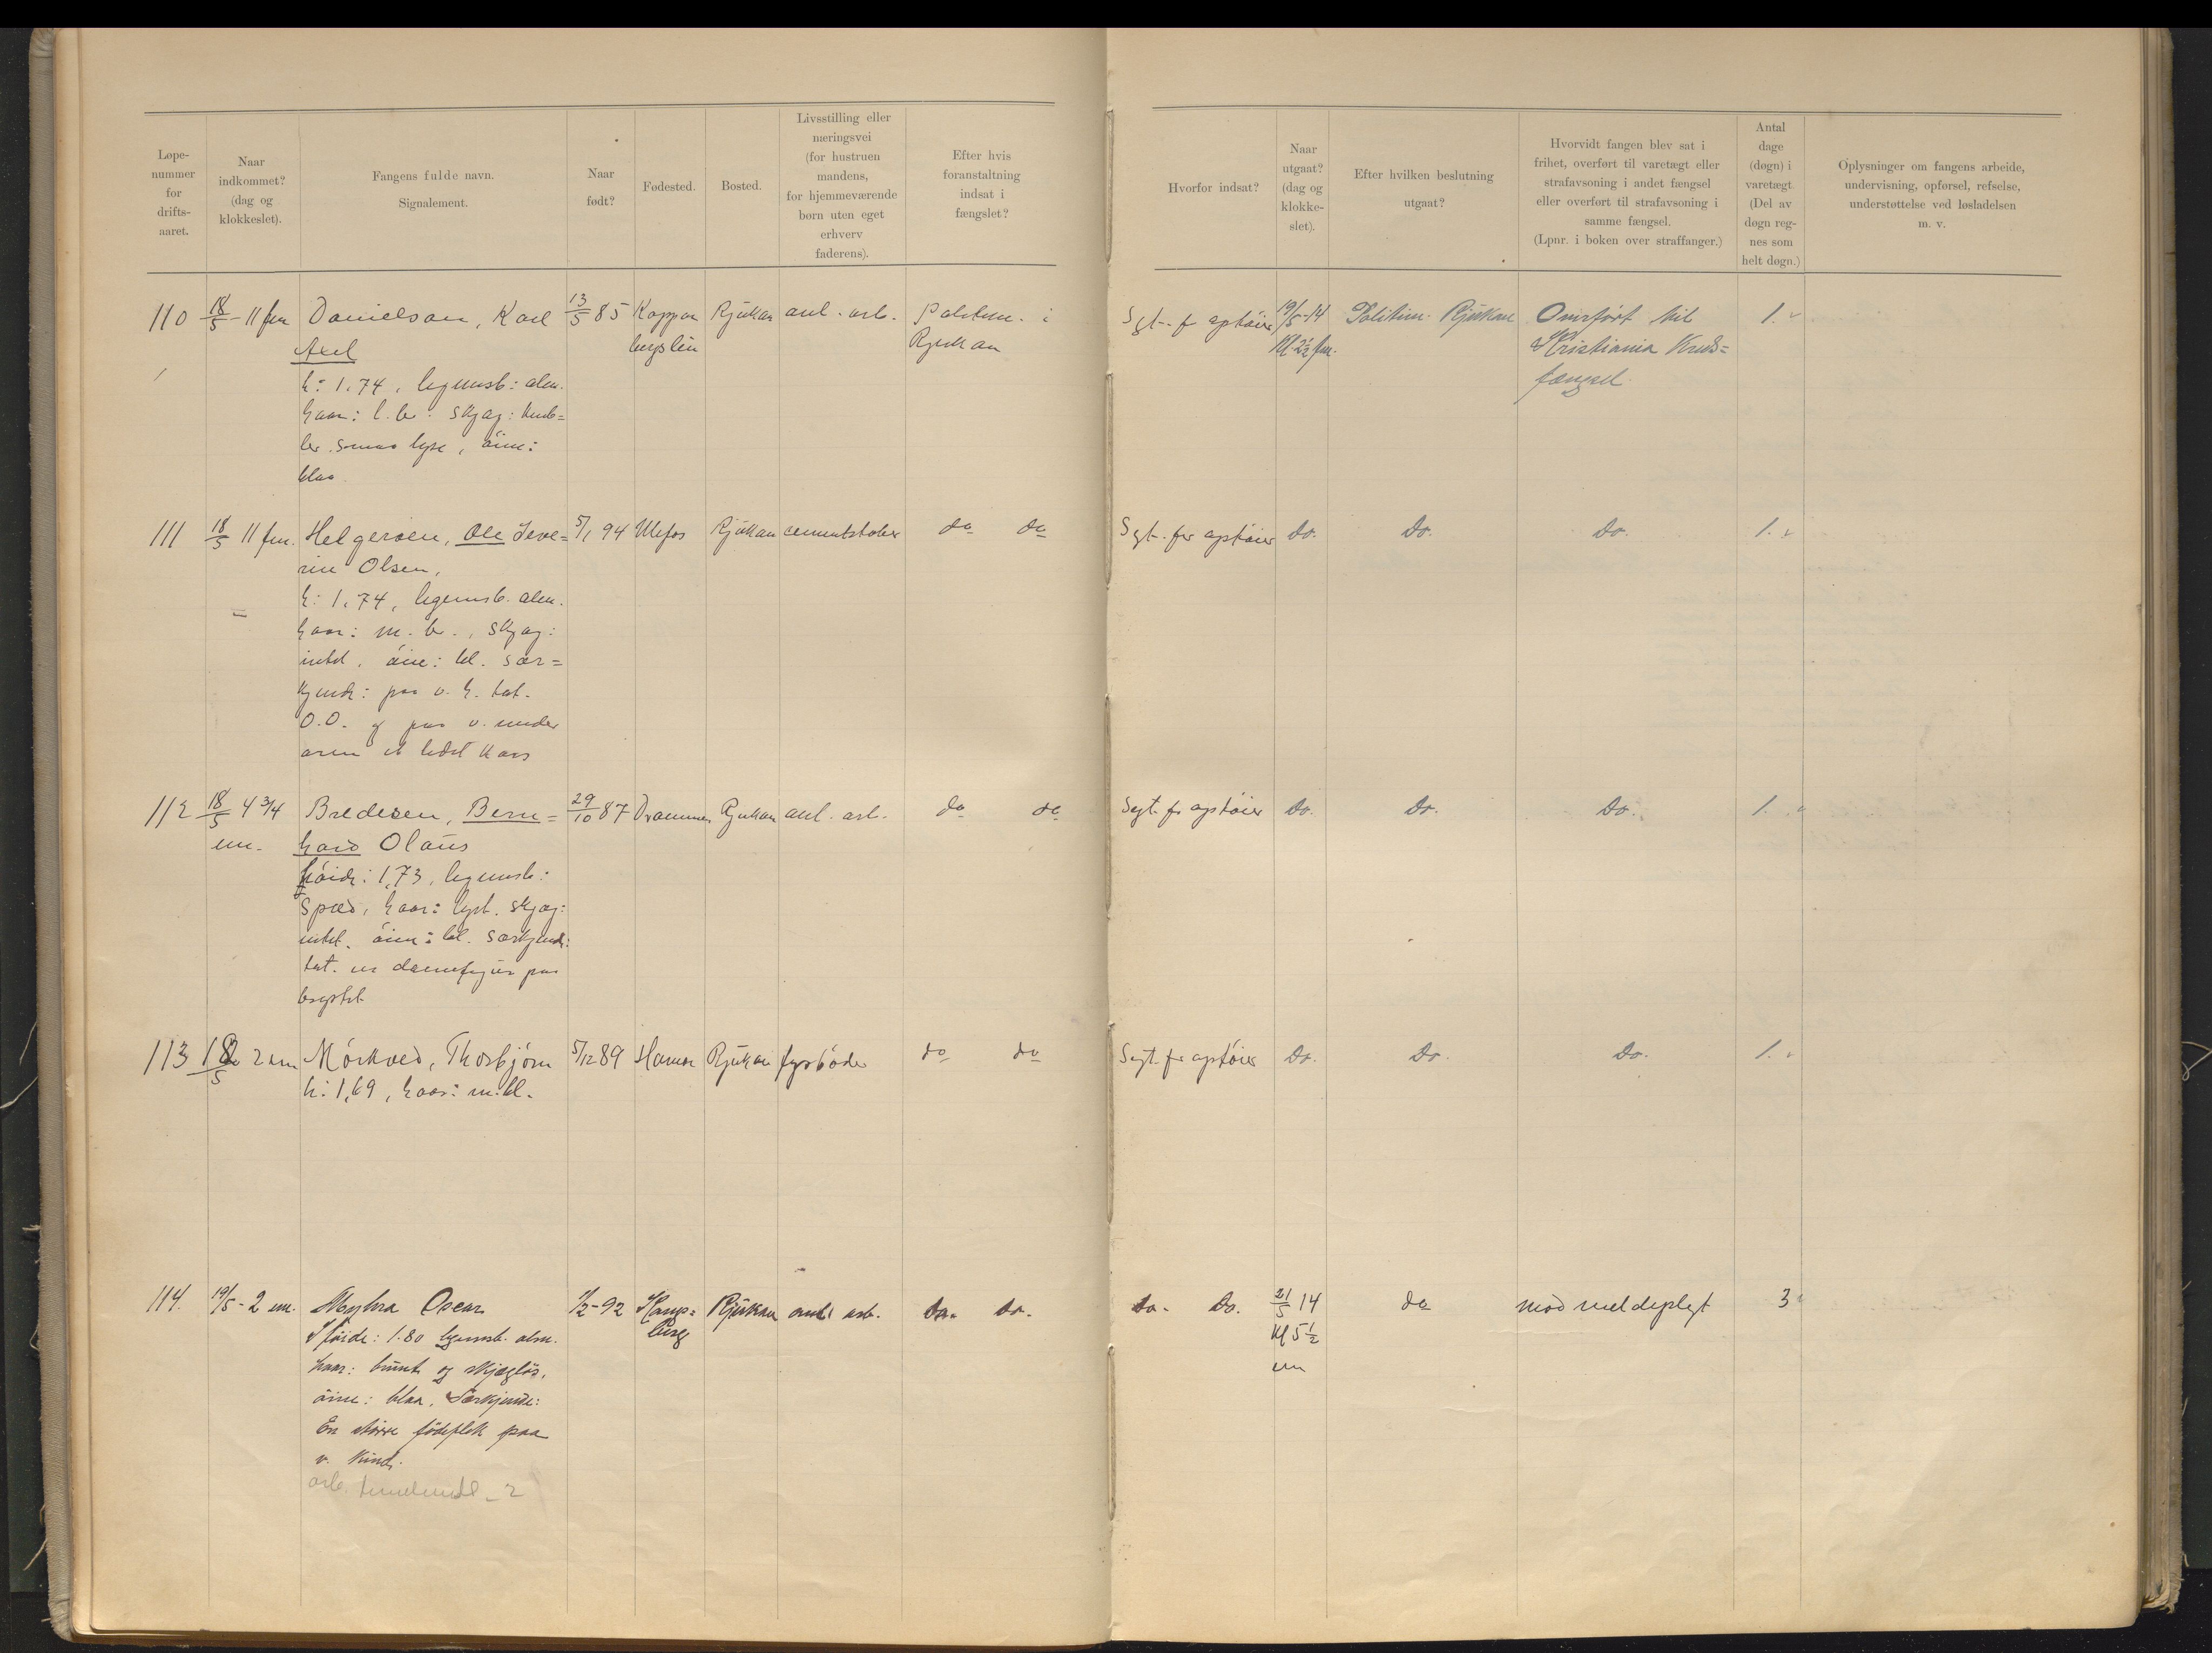 Løpe-
nummer
for
drifts-
aaret.
Naar
indkommet?
(dag og
klokkeslet).
Fangens fulde navn.
Signalement.
Naar
født?
Fødested.
Bosted.
Livsstilling eller
næringsvei
(for hustruen
mandens,
for hjemmeværende
børn uten eget
erhverv
faderens).
Efter hvis
foranstaltning
indsat i
fængslet?
Hvorfor indsat?
Naar
utgaat?
(dag og
klokke-
slet).
Efter hvilken beslutning
utgaat?
Hvorvidt fangen blev sat i
frihet, overført til varetægt eller
strafavsoning i andet fængsel
eller overført til strafavsoning i
samme fængsel.
(Lpnr. i boken over straffanger.)
Antal
dage
(døgn) i
varetægt
(Del av
døgn reg-
nes som
helt døgn.)
Oplysninger om fangens arbeide,
undervisning, opførsel, refselse,
understøttelse ved løsladelsen
m. v.
110 18/5 - 11 fm Danielson, Karl 13/5 85 Koppar Rjukan anl. arb. Politim. i
Axel bergslén Rjukan
h: 1,74, legemsb: alm.
haar: l. br. skjæg: kneb=
ler smaa lyse, öine:
blaa
Sgt. f. optöier 19/5-14 Politim. Rjukan Omfört til 1.
Kl 2½ fm. Kristiania Kreds=
fængsel
111 18/5 11 fm. Helgeroen, Ole Seve= 5/1 94 Ulefos Rjukan cementstøber do do
rin Olsen,
h: 1,74, legemsb. alm.
haar: m. b., skjæg:
intet, öine: bl. sær=
kjende: paa v. h. tat.
O.O. og paa v. under
arm et lidet kors
Sgt. for optöier do. do. do. 1.
112 18/5 4 3/4 Bredesen, Bern= 29/10 87 Drammen Rjukan anl. arb. do do
em. hard Olaus
höide: 1,73, legemsb:
spæd, haar: lyst. skjæg:
intet. öine: bl. særkjende:
tat. en damefigur paa
brystet
Sigt. for optöier do. do. do. 1.
113 18/5 2 em Mörkved, Thorbjörn 5/12 89 Hamar Rjukan fyrböder do do
h: 1,69, haar: m. bl.
Sigt. for optöier do. do. do. 1.
114. 19/5 - 2 em. Myhra Oscar 1/2-92 Kongs= Rjukan anl. arb. do. do.
berg
Höide: 1.80 legemsb. alm.
haar: brunt og skjæglös,
öine: blaa, Særkjende:
En större födeflek paa
v. kind.
arb.
do. do. 21/5 14 do mod meldepligt 3
Kl 5½
em